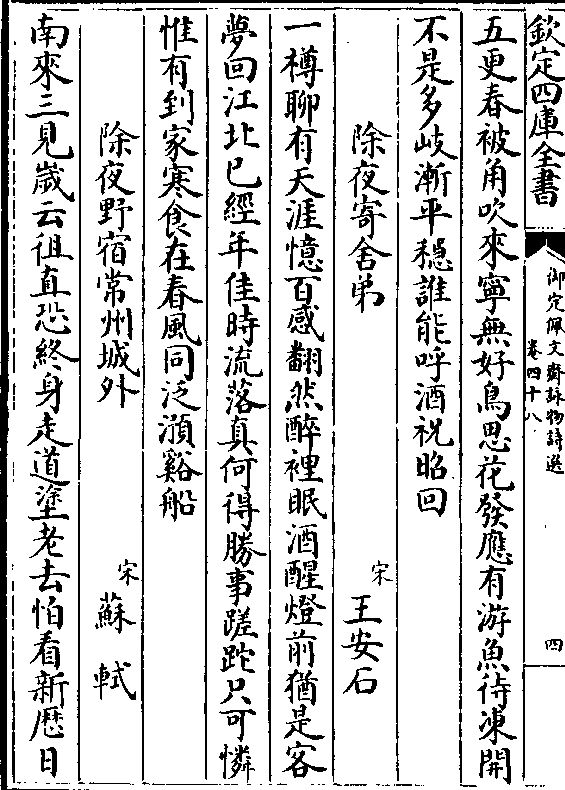 欽定四庫全書
御定佩文齋詠物詩選
卷四十八
四
五更春被角吹來寧無好鳥思花發應有游魚待凍開
不是多歧漸平穩誰能呼酒祝昭回
除夜寄舍弟
宋 王安石
一樽聊有天涯憶百感翻然醉裡眠酒醒燈前猶是客
夢回江北已經年佳時流落真何得勝事蹉跎只可憐
惟有到家寒食在春風同泛瀕谿船
除夜野宿常州城外
宋 蘇軾
南來三見嵗云徂直恐終身走道塗老去怕看新厯日